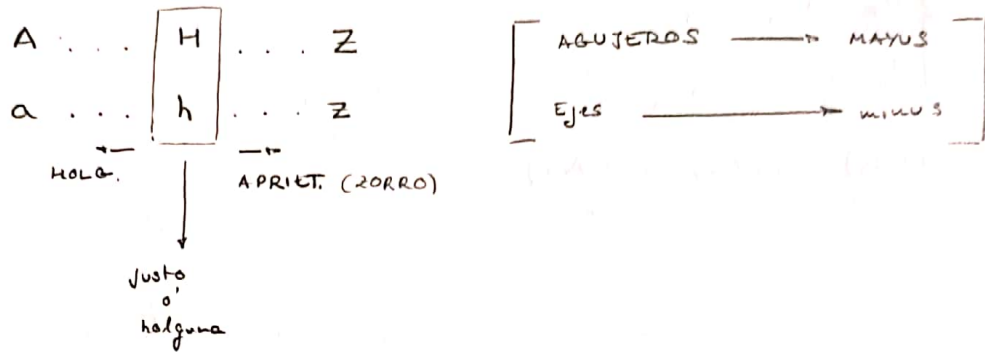 A . . . H . . . Z
a . . . h . . . z
HOLG.
APRIET. (ZORRO)
Justo
ó
holgura
AGUJEROS → MAYUS
Ejes → minus